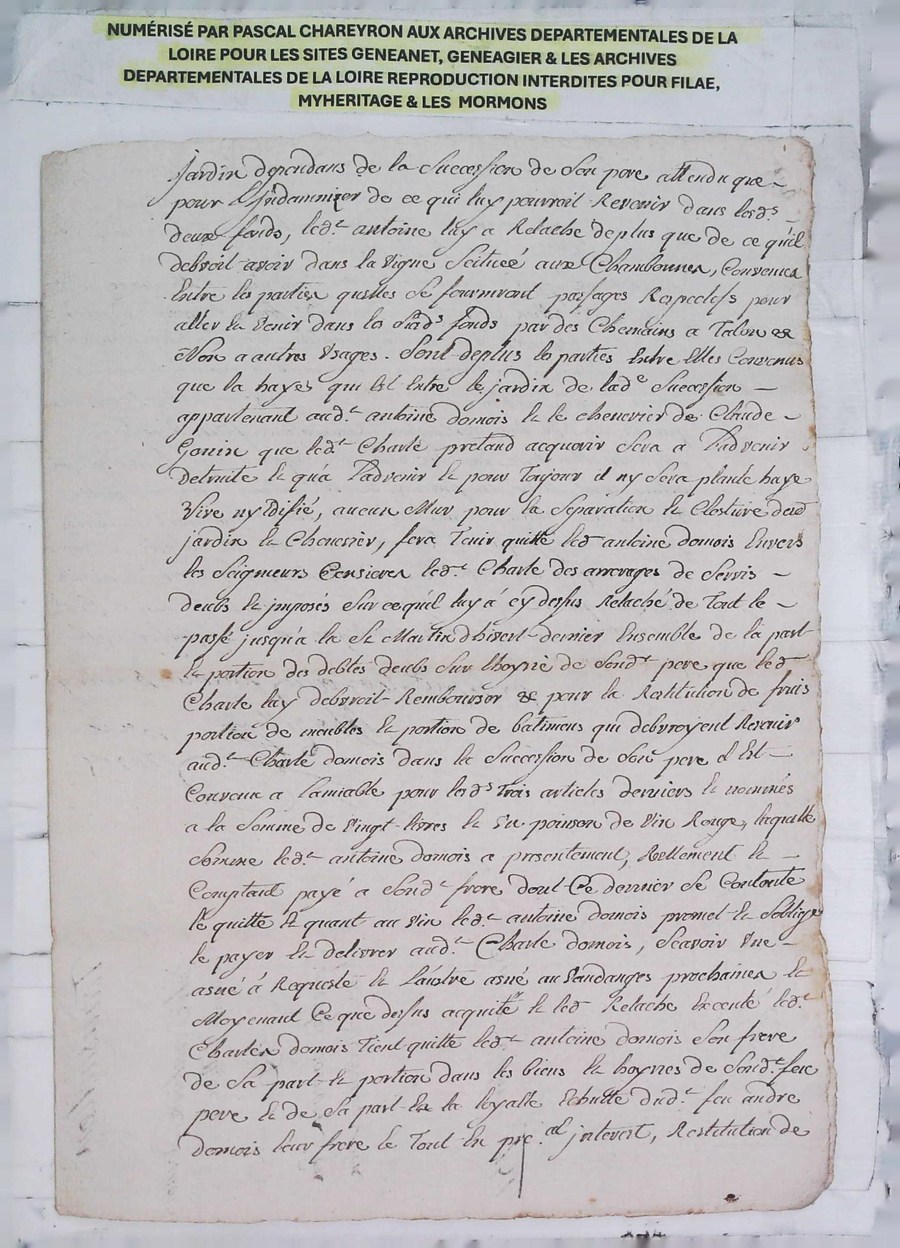 NUMÉRISÉ PAR PASCAL CHAREYRON AUX ARCHIVES DEPARTEMENTALES DE LA
LOIRE POUR LES SITES GENEANET, GENEAGIER & LES ARCHIVES
DEPARTEMENTALES DE LA LOIRE REPRODUCTION INTERDITES POUR FILAE,
MYHERITAGE & LES MORMONS
Jardin dependans de la Succession de Son pere attendu que
pour l'Indamnizer de ce qui luy pourroit Revenir dans lesds
deux fonds, ledt antoine luy a Relaché de plus que de ce qu'il
debvoit avoir dans la vigne Scitueé aux Chambonnes, Convenu
Entre les parties qu'elles Se fourniront passages Respectifs pour
aller Et venir dans les Susds fonds par des Chemains a Talon &
Non a autres Usages. Sont deplus les parties Entre Elles Convenus
que la hayes qui Est Entre le jardin de lade Succession
appartenant audt antoine domois Et le chenevier de Claude
Gonin que ledt Charle pretand acquerir Sera a l'advenir
detruite Et qu'a l'advenir Et pour Toujour il ny Sera planté haye
Vive ny Edifié, aucun Mur pour la Separation Et Closture dud
jardin Et Chenevier, fera Tenir quitte led antoine domois Envers
les Seigneurs Censiers ledt Charle des arrerages de Servis
deubs Et imposés Sur ce qu'il luy á cy dessus Relaché de Tout le
passé jusqu'a la St Martin d'hivert dernier Ensemble de la part
Et portion des debtes deubs Sur l'hoyrie de Sondt pere que led
Charle luy debvroit Rembourser & pour la Restitution de fruis
portion de meubles Et portion de batimens qui debvroyent Revenir
audt Charle domois dans la Succession de Son pere il Est
Convenu a l'amiable pour lesds Trois articles derniers Et nommés
a la Somme de Vingt livres Et Un poinson de Vin Rouge, laquelle
Somme ledt antoine domois a presentement, Rellement Et
Comptant payé a Sondt frere dont Ce dernier Se Contente
le quitte Et quant au Vin ledt antoine domois promet Et S'oblige
le payer Et delivrer audt Charle domois, Scavoir Une
asné á Requeste Et L'austre asné au Vandanges prochaines Et
Moyenant Ce que dessus acquité Et led Relache Excenté ledt
Charles domois Tient quitte ledt antoine domois Son frere
de Sa part Et portion dans les biens Et hoynes de Sondt feu
pere Et de Sa part En la loyalte Echutte dudt feu andre
domois leur frere le Tout En pr.al interest, Restitution de